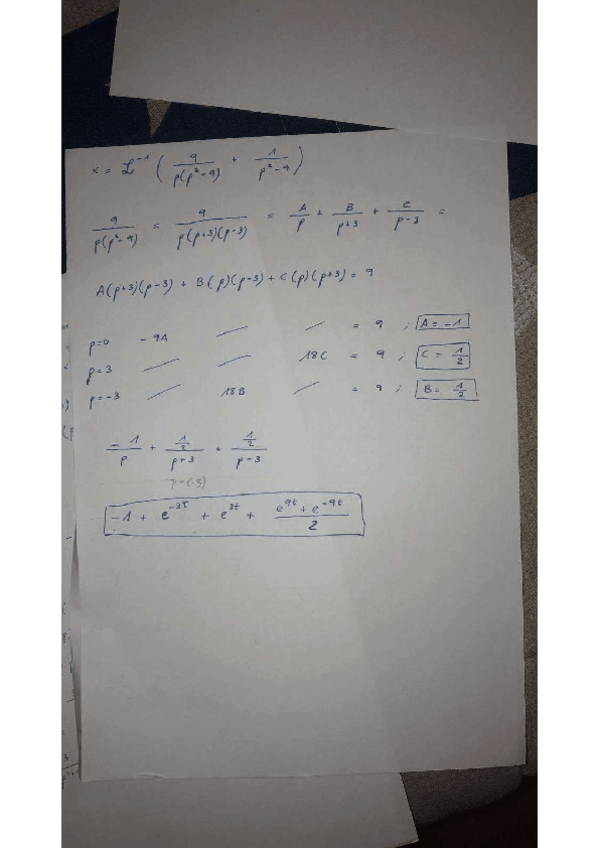 x = ℒ⁻¹ ( 9/(p(p²-9)) + 1/(p²-9) )
9/(p(p²-9)) = 9/(p(p+3)(p-3)) = A/p + B/(p+3) + C/(p-3) =
A(p+3)(p-3) + B(p)(p-3) + C(p)(p+3) = 9
p=0 - 9A = 9 ; A = -1
p=3 18C = 9 ; C = 1/2
p=-3 18B = 9 ; B = 1/2
-1/p + (1/2)/(p+3) + (1/2)/(p-3)
p-(-3)
-1 + e^(-3t) + e^(3t) + (e^(9t) + e^(-9t))/2